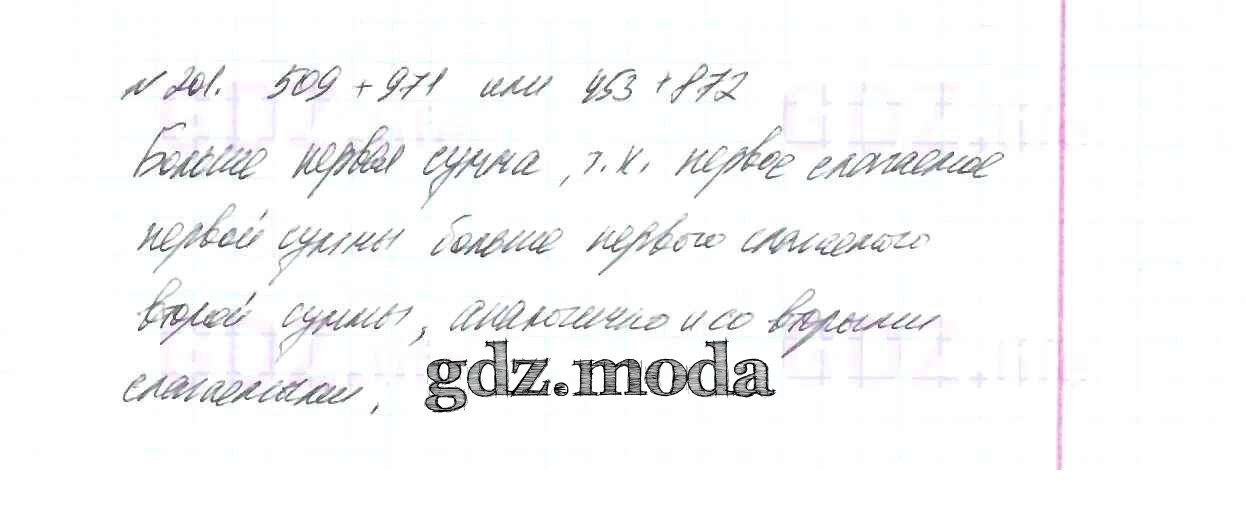 № 201. 509 + 971 или 453 + 872
Больше первая сумма, т.к. первое слагаемое
первой суммы больше первого слагаемого
второй суммы, аналогично и со вторыми
слагаемыми.
gdz.moda